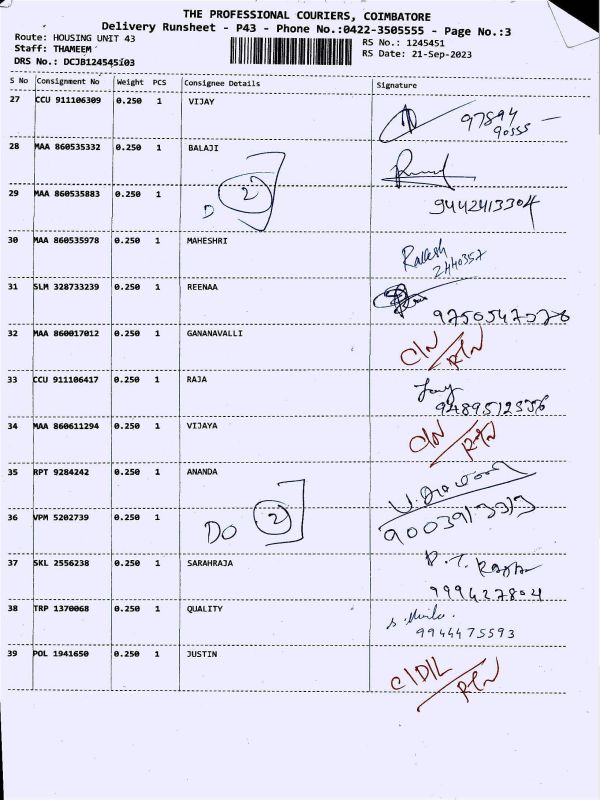 THE PROFESSIONAL COURIERS, COIMBATORE
Delivery Runsheet - P43 - Phone No.:0422-3505555 - Page No.:3
Route: HOUSING UNIT 43
RS No.: 1245451
Staff: THAMEEM
RS Date: 21-Sep-2023
DRS No.: DCJB124545103
S No Consignment No Weight PCS Consignee Details Signature
27 CCU 911106309 0.250 1 VIJAY
97894
90555
28 MAA 860535332 0.250 1 BALAJI
D 2
29 MAA 860535883 0.250 1 9442413304
30 MAA 860535978 0.250 1 MAHESHRI
2440357
31 SLM 328733239 0.250 1 REENAA
32 MAA 860017012 0.250 1 GANANAVALLI
C/N
RTN
33 CCU 911106417 0.250 1 RAJA
34 MAA 860611294 0.250 1 VIJAYA
C/N
RTN
35 RPT 9284242 0.250 1 ANANDA
36 VPM 5202739 0.250 1
DO 2
37 SKL 2556238 0.250 1 SARAHRAJA
9994227804
38 TRP 1370068 0.250 1 QUALITY
9944475593
39 POL 1941650 0.250 1 JUSTIN
C/D/L
RTN